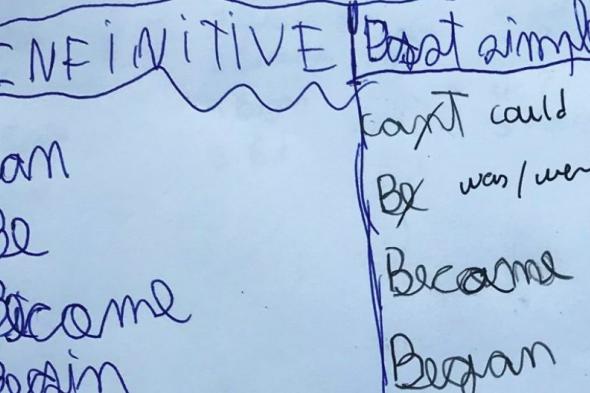 ENFiNiTiVE Past simpl
an can't could
Be Be was/wer
Become Became
Begin Began